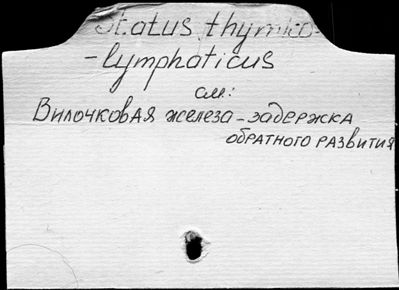 Status thymico-
-lymphaticus
см.:
Вилочковая железа-задержка
обратного развития